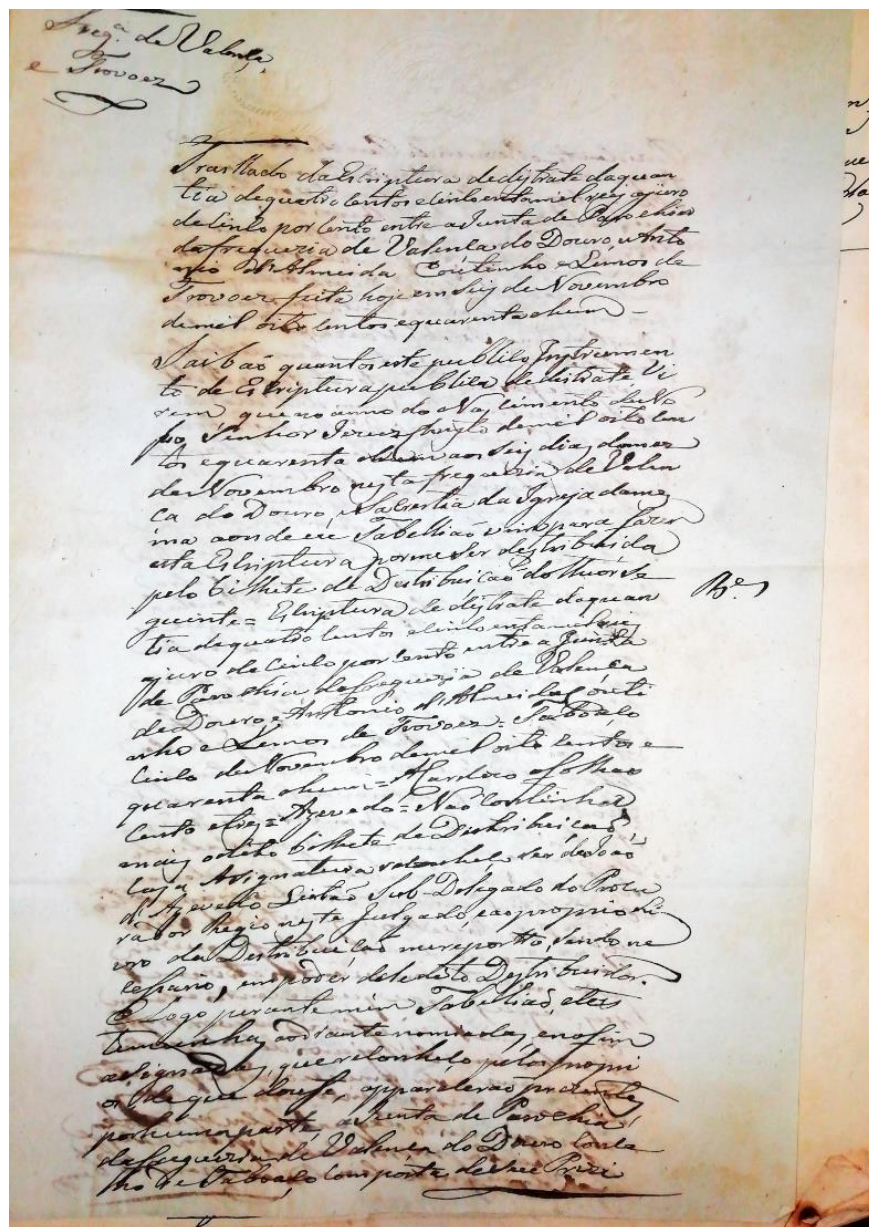 Freg.ª de Valença
e Trovoez
Trasllado da Escriptura de distrate da quan
tia de quatro centos e cincoenta mil reis a juro
de cinco por cento entre a Junta de Parochia
da freguezia de Valença do Douro, e Anto
nio d'Almeida Coutinho e Lemos de
Trovoez feita hoje em seis de Novembro
de mil oito centos e quarenta e hum
Saibaõ quantos este publico Instrumen
to de Escriptura publica de distrate vi
rem que no anno do Nascimento de No
sso Senhor Jezus Christo de mil oito cen
tos e quarenta e hum aos seis dias do mez
de Novembro nesta freguezia de Valen
ca do Douro, e Sacristia da Igreja da mes
ma aonde eu Tabelliaõ vim para fazer
esta Escriptura por me ser destribuida
pelo bilhete de Destribuicaõ do theor se
guinte = Escriptura de distrate da quan
tia de quatro centos e cincoenta mil reis
a juro de cinco por cento entre a Junta
de Parochia da freguezia de Valença
do Douro e Antonio d'Almeida Couti
nho e Lemos de Trovoez = Taboaço
cinco de Novembro de mil oito centos e
quarenta e hum = a folhas
cento e = Azevedo = Naõ continha
mais o dito bilhete de Destribuicaõ,
cuja Asignatura reconheço ser de Joaõ
d'Azevedo Sub-Delegado do Procu
rador Regio neste Julgado, e ao proprio Li
vro da Destribuicaõ me reporto, sendo ne
cessario, em poder dele dito Destribuidor.
E Logo perante mim Tabelliaõ, e tes
temunhas, aodiante nomiadas, e no fim
asignadas, que reconheço pelos propri
os de que dou fe, apparecerao prezentes
por huma parte, a Junta de Parochia
da freguezia de Valença do Douro Conce
lho de Taboaço, composta de seu Prezi